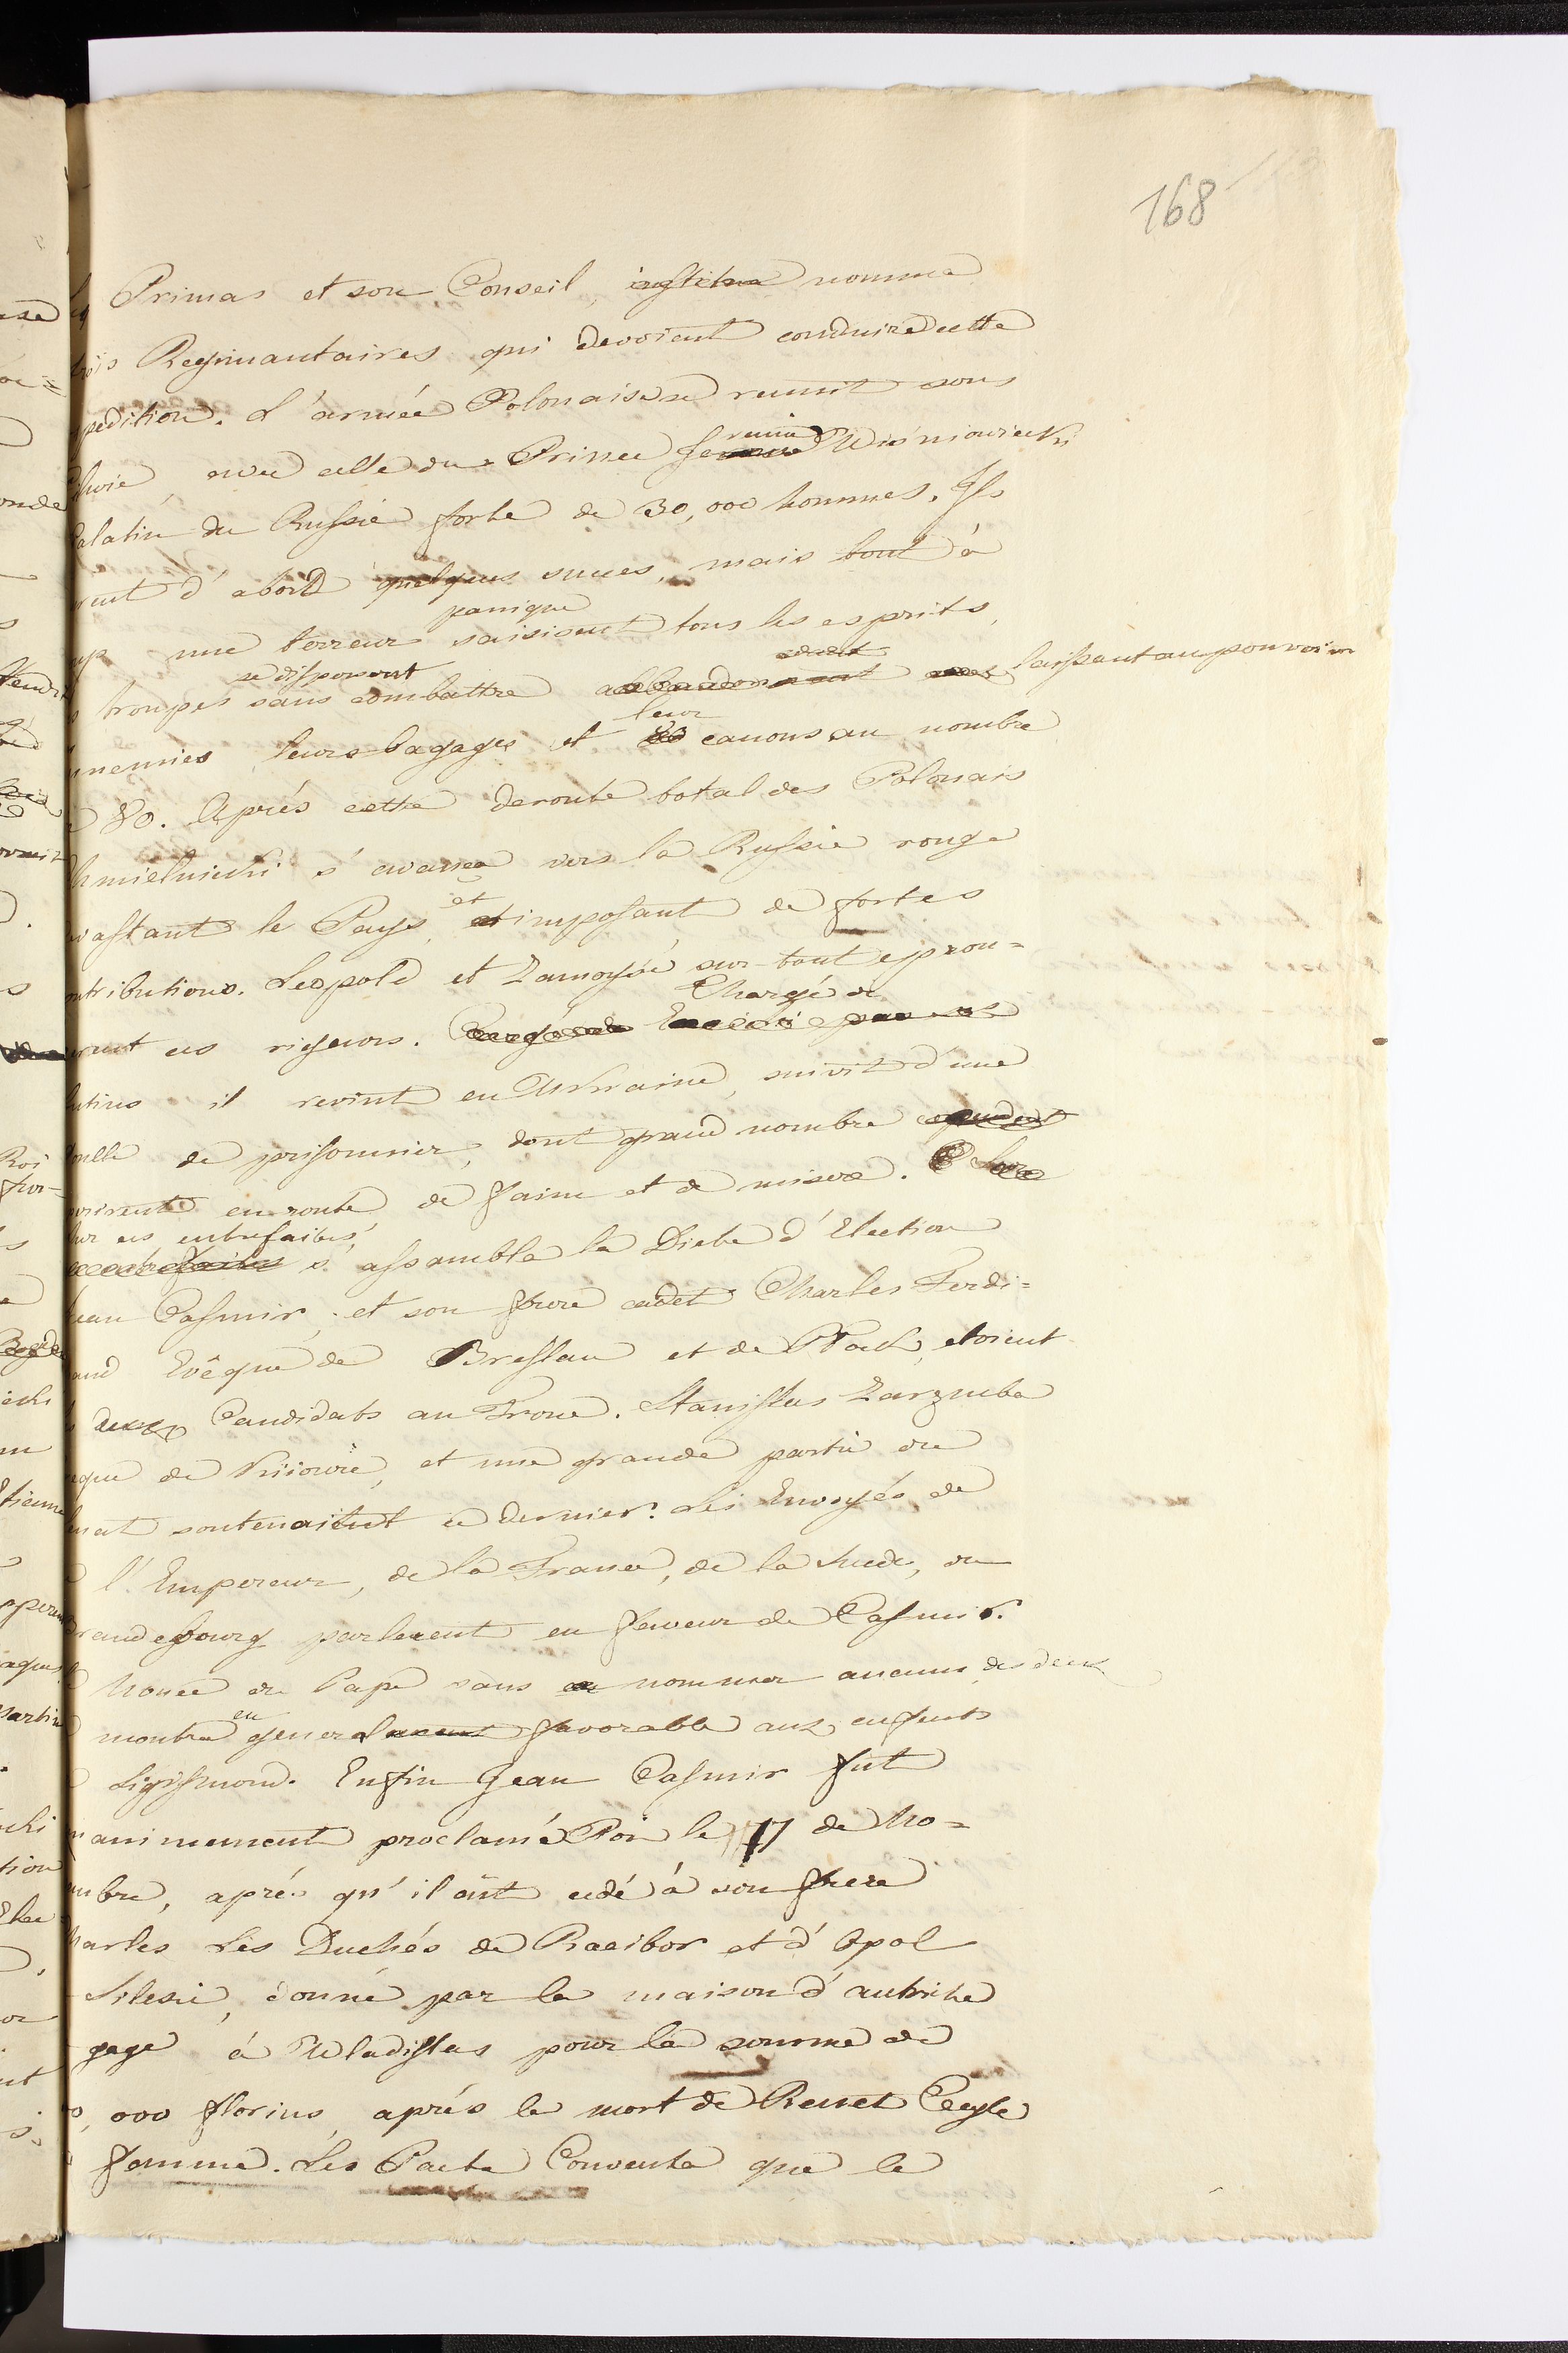 168
Primas et son Conseil, nomma
Regimantaires qui devoient conduire cette
pedition. L'armée Polonaise se reunit sous
avec celle du Prince Jeremie Wiśniowiecki
Palatin du Russie forte de 30,000 hommes. Ils
rent d'abord quelques succes, mais tout à
panique
une terreur saisisent tous les esprits,
se disposent
troupes sans combattre laissant au pouvoir
leur
nnemies leurs bagages et canons au nombre
80. Après cette deroute total des Polonais
hmielnicki s'avança vers la Russie rouge
et
vastant le Pays, et imposant de fortes
ntributions. Leopold et Zamoyść sur-tout eprou=
Chargé de
rent ces rigeurs.
butins il revint en Ukraine, suivit d'une
foulle de prisonnier, dont grand nombre
perirent en route de faim et de misere.
Sur ces entrefaites,
s'assambla la Diete d'Election
Jean Casmir, et son frere cadet Charles Ferdi=
nand Evêque de Breslau et de Plock, etoient
deux Candidats au Trone. Stanislas Zarzuba
eque de Kiiowie, et une grande partie du
enat soutenaitent ce dernier. Les Envoyés de
l'Empereur, de la France, de la Suede, du
Brandebourg parlerent en faveur de Casmir.
Nonce du Pape sans nommer aucuns des deux
en
montra general favorable aux enfents
Sigismond. Enfin Jean Casmir fut
nanimement proclamé Roi le 17 de No=
mbre, aprés qu'il aût cedé à son frere
Charles Les Duchés de Racibor et d'Opol
Silesie, donné par la maison d'autriche
gage à Wladislas pour la somme de
,000 florins, aprés la mort de Renet
femme. Les Pacta Conventa que le